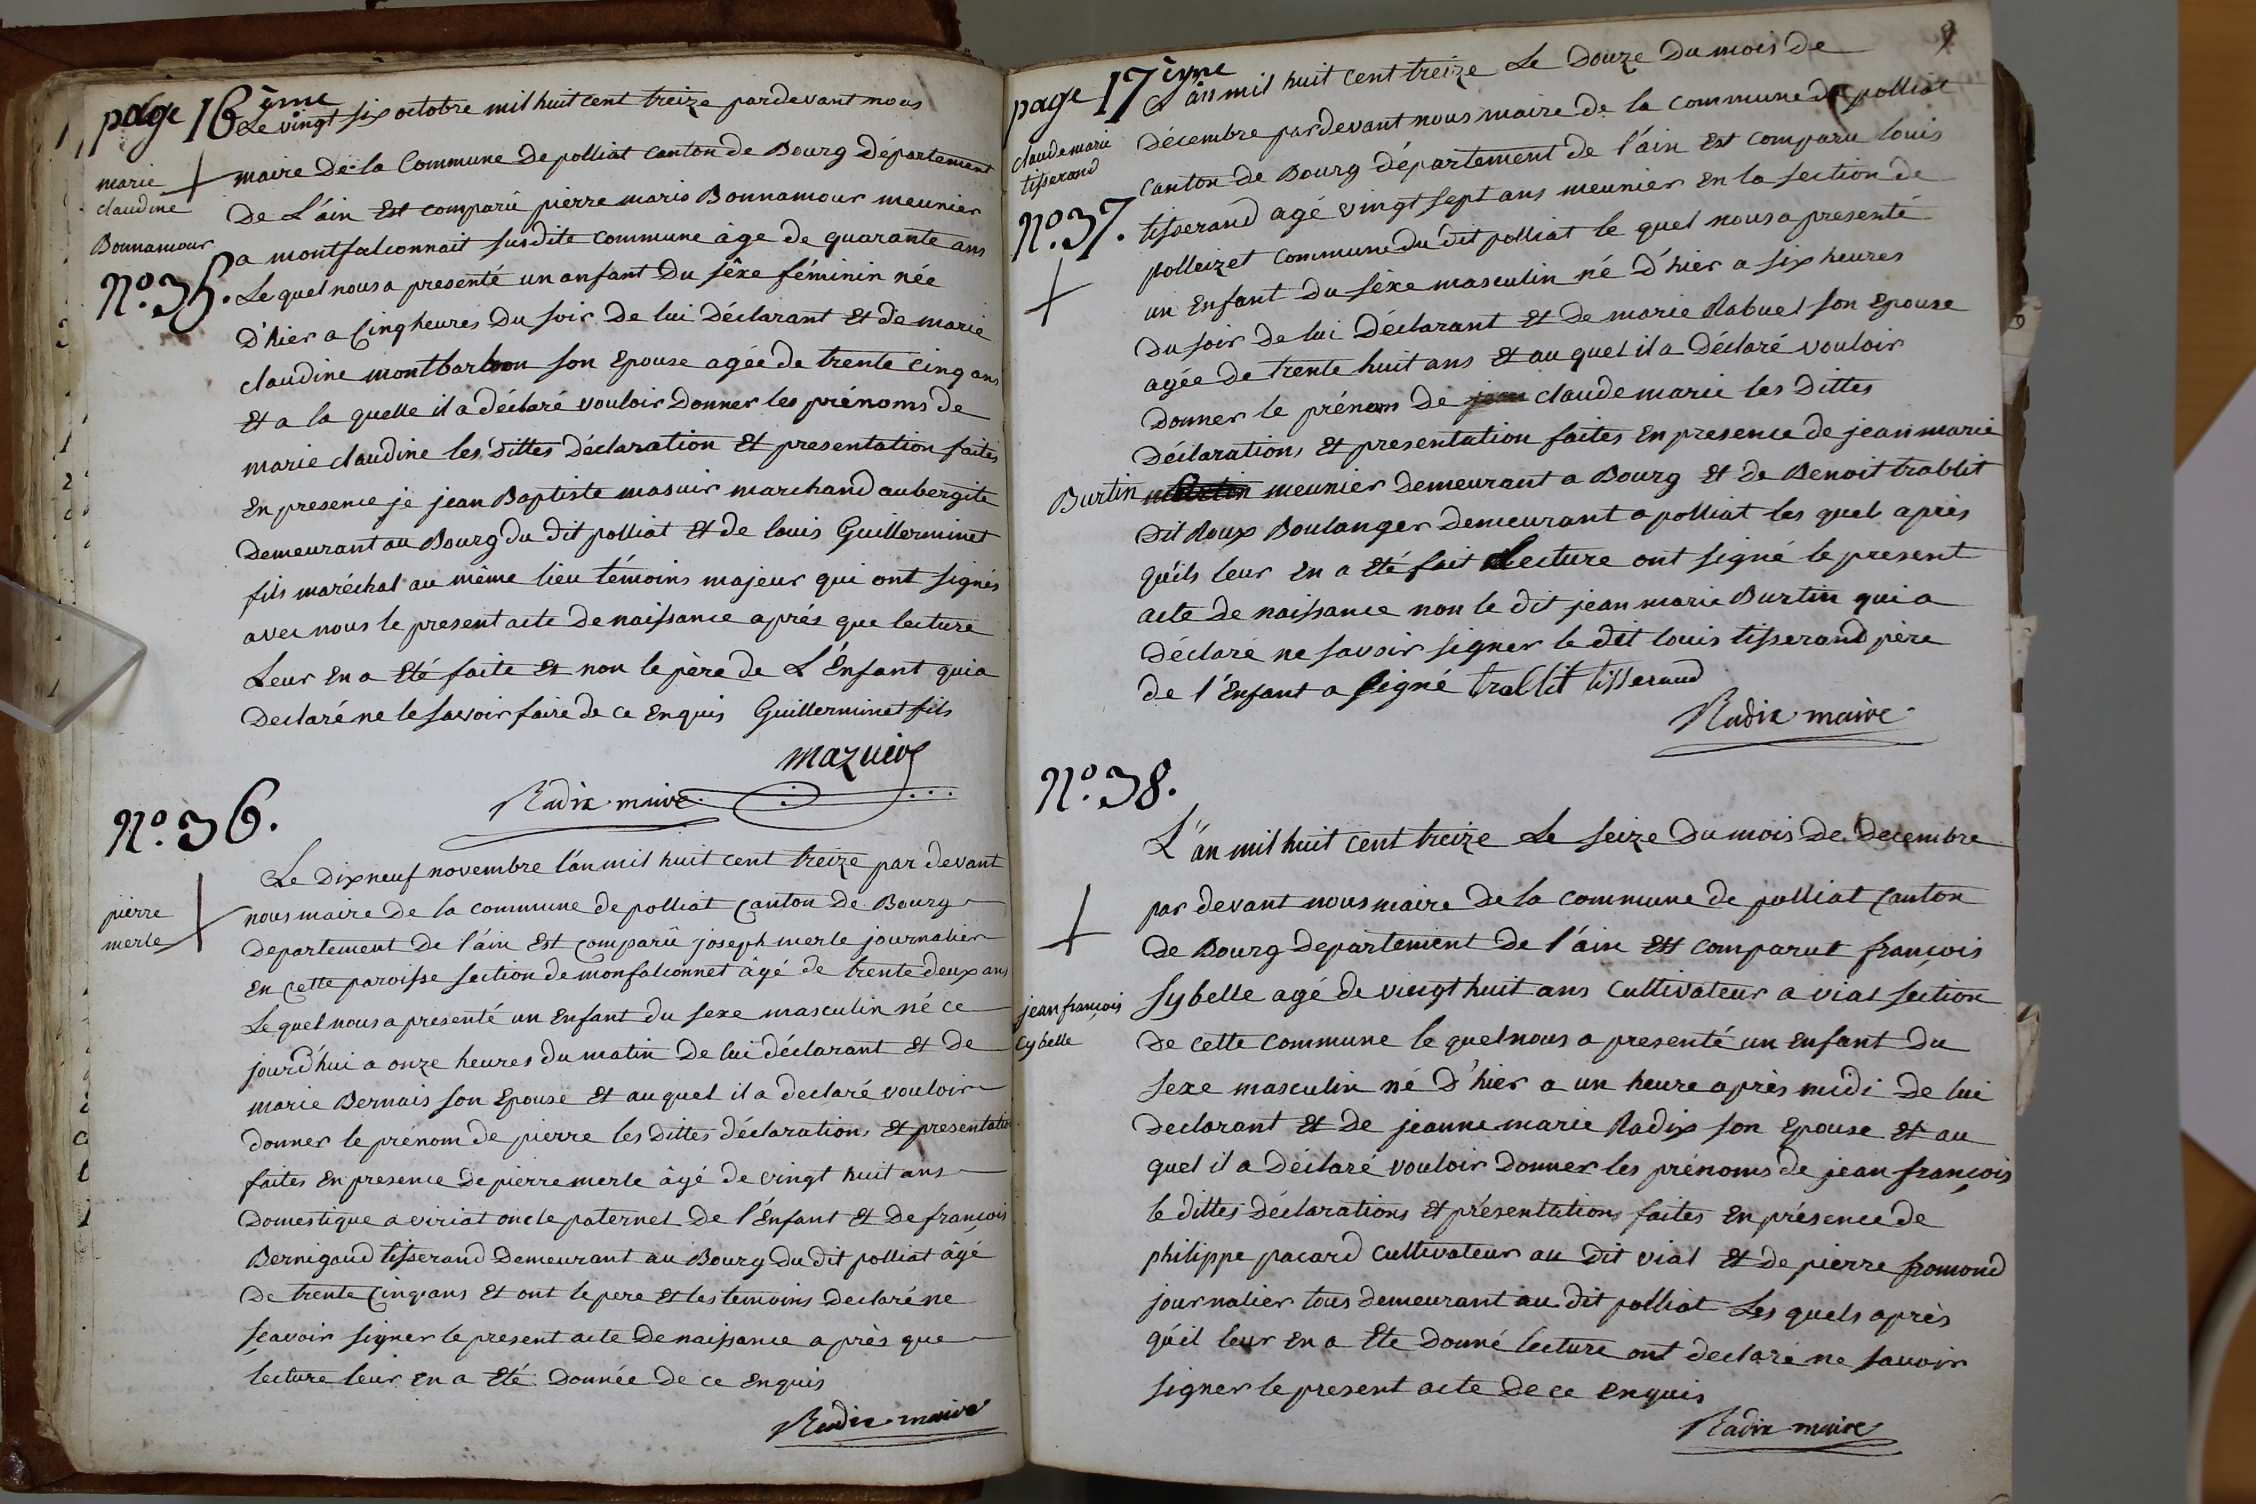 page 16ème
Le vingt six octobre mil huit cent treize pardevant nous
marie
claudine
Bonnamour
N.o 35.
maire de la Commune de polliat canton de Bourg département
De L'áin Est comparû pierre marie Bonnamour meunier
a montfalconnait susdite commune âge de quarante ans
Le quel nous a presenté un anfant Du sêxe féminin née
D'hier a Cinq heures Du soir De lui Déclarant Et de marie
claudine montbarbon son Epouse agée de trente cinq ans
Et a la quelle il a déclaré vouloir Donner les prénoms de
marie claudine les dittes Déclaration Et presentation faites
En presence je jean Baptiste masuir marchand aubergite
Demeurant au Bourg du dit polliat Et de louis Guillerminet
fils maréchal au même lieu témoins majeur qui ont signés
avec nous le present acte De naissance après que lecture
Leur En a Eté faite Et non le père de L'Enfant qui a
Declaré ne le savoir faire de ce Enquis Guillerminet fils
mazuir
Radix maire
N.o 36.
pierre
merle
Le Dix neuf novembre l'an mil huit cent treize par devant
nous maire de la commune de polliat Canton De Bourg
departement De l'áin Est Comparû joseph merle journalier
En Cette paroisse section de monfalconnet âgé de trente deux ans
Le quel nous a presenté un Enfant du sexe masculin né ce
jourd'hui a onze heures du matin De lui déclarant Et De
marie Bernais son Epouse Et au quel il a declaré vouloir
donner le prénom de pierre les Dittes déclarations Et presentation
faites En presence De pierre merle âgé de vingt huit ans
Domestique a viriat oncle paternel De l'Enfant Et De françois
Bernigaud tisserand Demeurant au Bourg Du dit polliat âgé
De trente Cinq ans Et ont le pere Et les temoins Declaré ne
sçavoir signer le present acte De naissance après que
lecture leur En a Eté Donnée De ce Enquis
Radix maire
9
page 17ème
L'án mil huit Cent treize Le Douze Du mois de
claude marie
tisserand
N.o 37.
Décembre pardevant nous maire de la commune de polliat
canton de Bourg département de l'áin Est comparu louis
tisserand agé vingt sept ans meunier En la section de
polleizet commune du dit polliat le quel nous a presenté
un Enfant Du sêxe masculin né D'hier a six heures
Du soir De lui Déclarant Et De marie Rabuel son Epouse
agée De trente huit ans Et au quel il a Déclaré vouloir
Donner le prénom De jean claude marie les Dittes
Déclarations Et presentation faites En presence de jean marie
Burtin meunier Demeurant a Bourg Et De Benoit trablit
Dit Roux Boulanger Demeurant a polliat les quel après
qu'ils leur En a Eté fait Lecture ont signé le present
acte De naissance non le Dit jean marie Burtin qui a
Déclaré ne savoir signer le dit louis tisserand père
De l'Enfant a signé trablit tisserand
Radix maire
N.o 38.
L'án mil huit Cent treize Le seize Du mois De Decembre
jean françois
Cybelle
par devant nous maire De la commune de polliat Canton
De Bourg departement De l'áin Est comparut françois
Sybelle agé de vieigt huit ans Cultivateur a vial section
De cette commune le quel nous a presenté un Enfant Du
sexe masculin né D'hier a un heure après midi De lui
declarant Et De jeanne marie Radix son Epouse Et au
quel il a Déclaré vouloir Donner les prénoms de jean françois
le dittes Déclarations Et présentations faites En présence de
philippe pacard Cultivateur au Dit vial Et De pierre fromond
journalier tous demeurant au dit polliat Les quels après
qu'il leur En a Ete Donné lecture ont declaré ne savoir
signer le present acte De ce Enquis
Radix maire